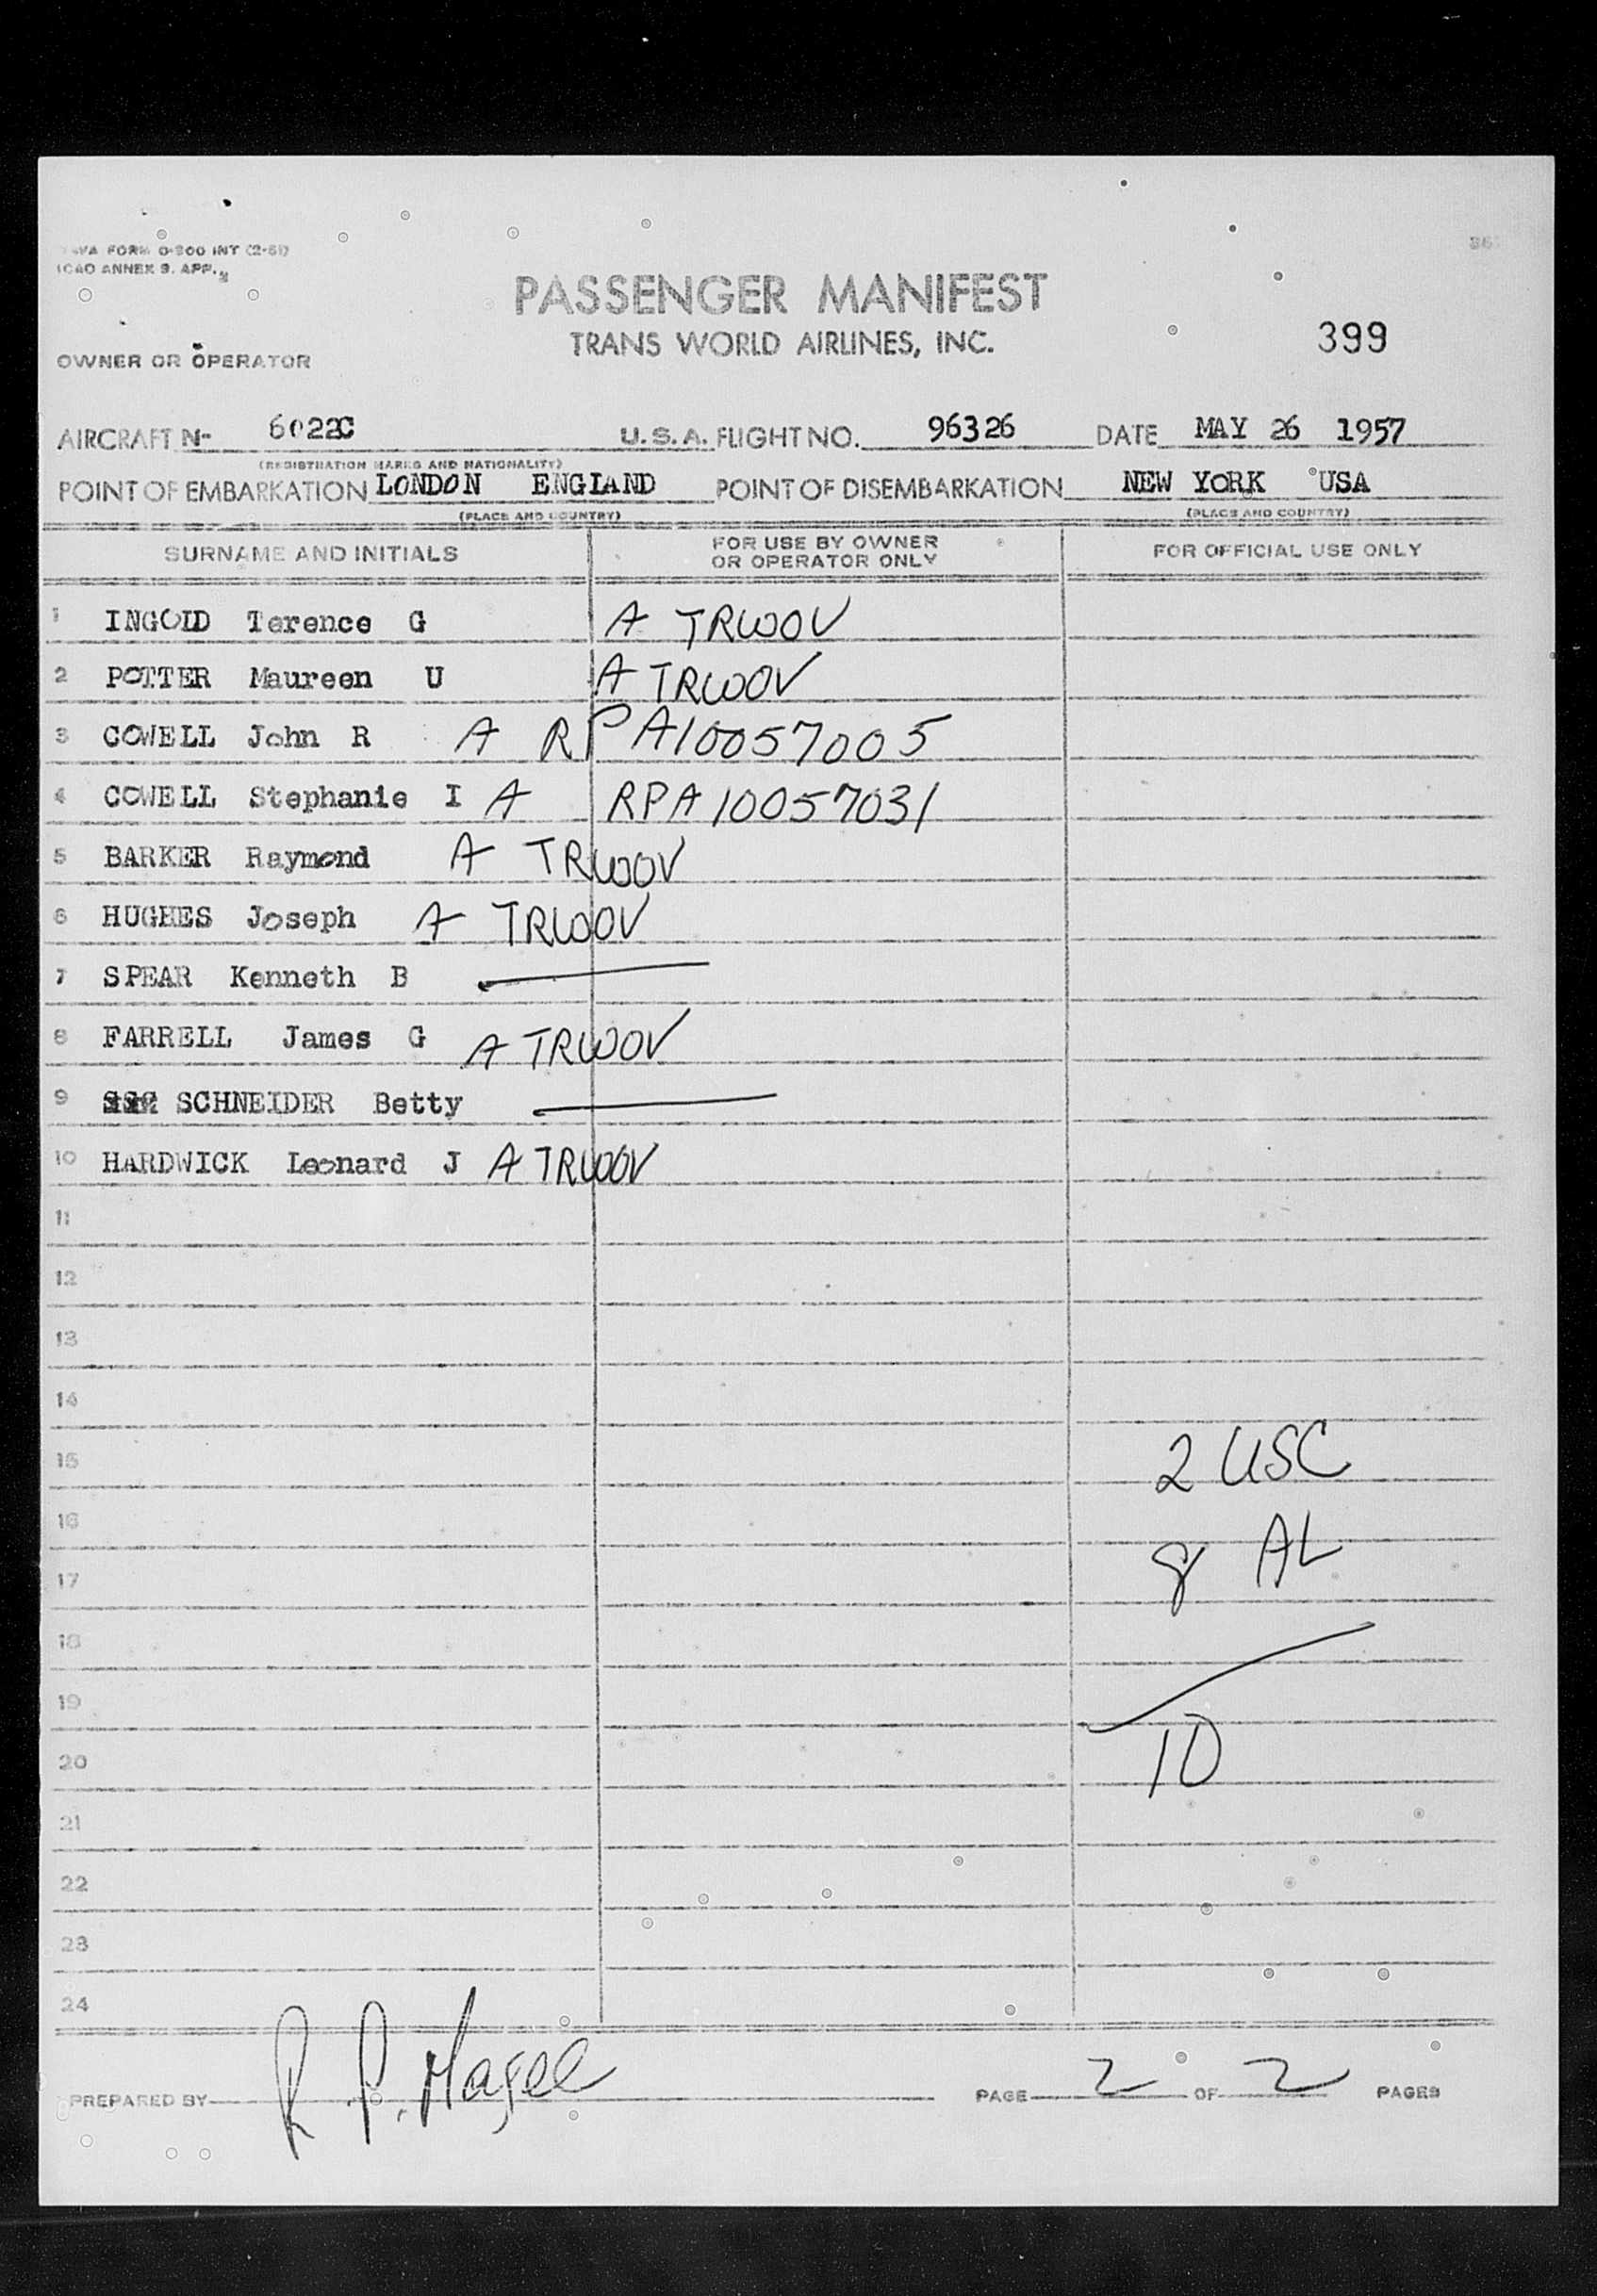 TWA FORM O-200 INT (2-51)
ICAO ANNEX 9. APP.
PASSENGER MANIFEST
TRANS WORLD AIRLINES, INC.
399
OWNER OR OPERATOR
AIRCRAFT N- 6022C U.S.A. FLIGHT NO. 96326 DATE MAY 26 1957
(REGISTRATION MARKS AND NATIONALITY)
POINT OF EMBARKATION LONDON ENGLAND POINT OF DISEMBARKATION NEW YORK USA
(PLACE AND COUNTRY) (PLACE AND COUNTRY)
SURNAME AND INITIALS FOR USE BY OWNER OR OPERATOR ONLY FOR OFFICIAL USE ONLY
1 INGOLD Terence G A TRWOV
2 POTTER Maureen U A TRWOV
3 COWELL John R A RPA10057005
4 COWELL Stephanie I A RPA10057031
5 BARKER Raymond A TRWOV
6 HUGHES Joseph A TRWOV
7 SPEAR Kenneth B
8 FARRELL James G A TRWOV
9 SCHNEIDER Betty
10 HARDWICK Leonard J A TRWOV
11
12
13
14
15 2 USC
16
17 8 AL
18
19
20 10
21
22
23
24
PREPARED BY R P. PAGE 2 OF 2 PAGES